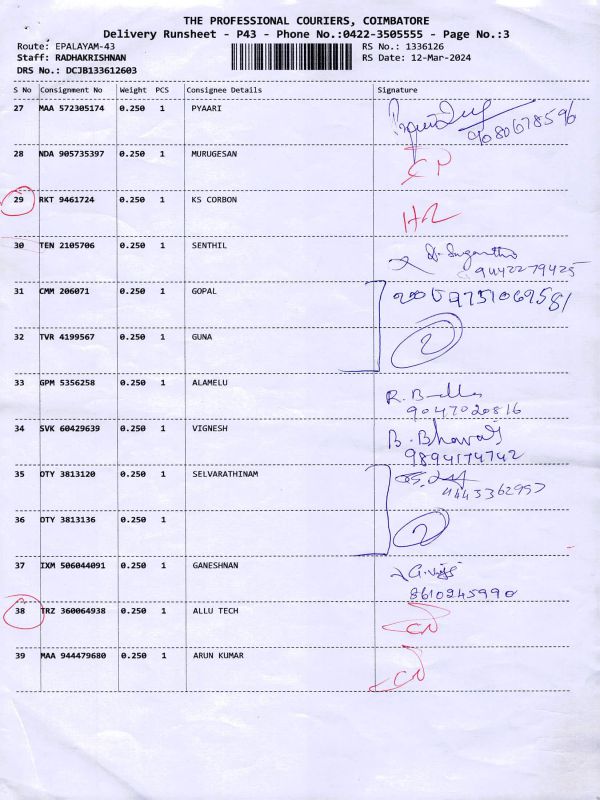 THE PROFESSIONAL COURIERS, COIMBATORE
Delivery Runsheet - P43 - Phone No.:0422-3505555 - Page No.:3
Route: EPALAYAM-43 RS No.: 1336126
Staff: RADHAKRISHNAN RS Date: 12-Mar-2024
DRS No.: DCJB133612603
S No Consignment No Weight PCS Consignee Details Signature
27 MAA 572305174 0.250 1 PYAARI
9080678596
28 NDA 905735397 0.250 1 MURUGESAN
29 RKT 9461724 0.250 1 KS CORBON
30 TEN 2105706 0.250 1 SENTHIL
9442279425
31 CMM 206071 0.250 1 GOPAL 9751069581
32 TVR 4199567 0.250 1 GUNA 2
33 GPM 5356258 0.250 1 ALAMELU
9047020816
34 SVK 60429639 0.250 1 VIGNESH
9894174742
35 DTY 3813120 0.250 1 SELVARATHINAM
36 DTY 3813136 0.250 1 2
37 IXM 506044091 0.250 1 GANESHNAN
8610245990
38 TRZ 360064938 0.250 1 ALLU TECH CN
39 MAA 944479680 0.250 1 ARUN KUMAR CN